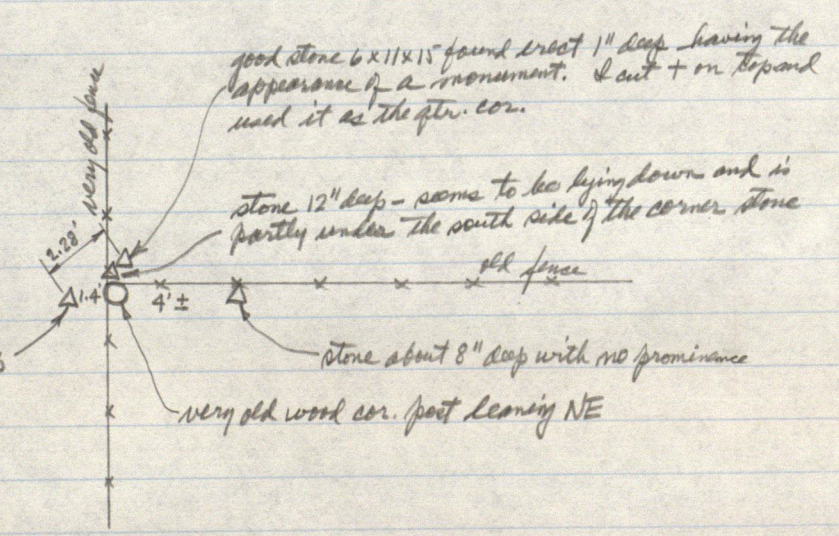 good stone 6x11x15 found erect 1" deep having the
appearance of a monument. I cut + on top and
used it as the qtr. cor.
very old fence
stone 12" deep - seems to be lying down and is
partly under the south side of the corner stone
2.28'
old fence
1.4'
4' ±
stone about 8" deep with no prominence
very old wood cor. post leaning NE